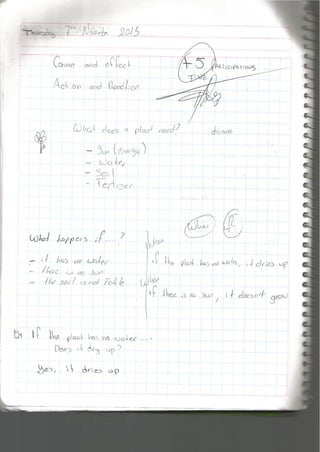 Thursday 7th November 2013
Cause and effect
+5 PARTICIPATIONS
Action and Reaction
What does a plant need?
- Sun (energy)
- water
- Soil
- Fertilizer
When if
What happens if ...?
- it has no water
- there is no sun
- the soil is not Fertile
When
if the plant has no water, it dries up
When
if there is no sun, it doesn't grow
If the plant has no water ...
Does it dry up?
Yes, it dries up